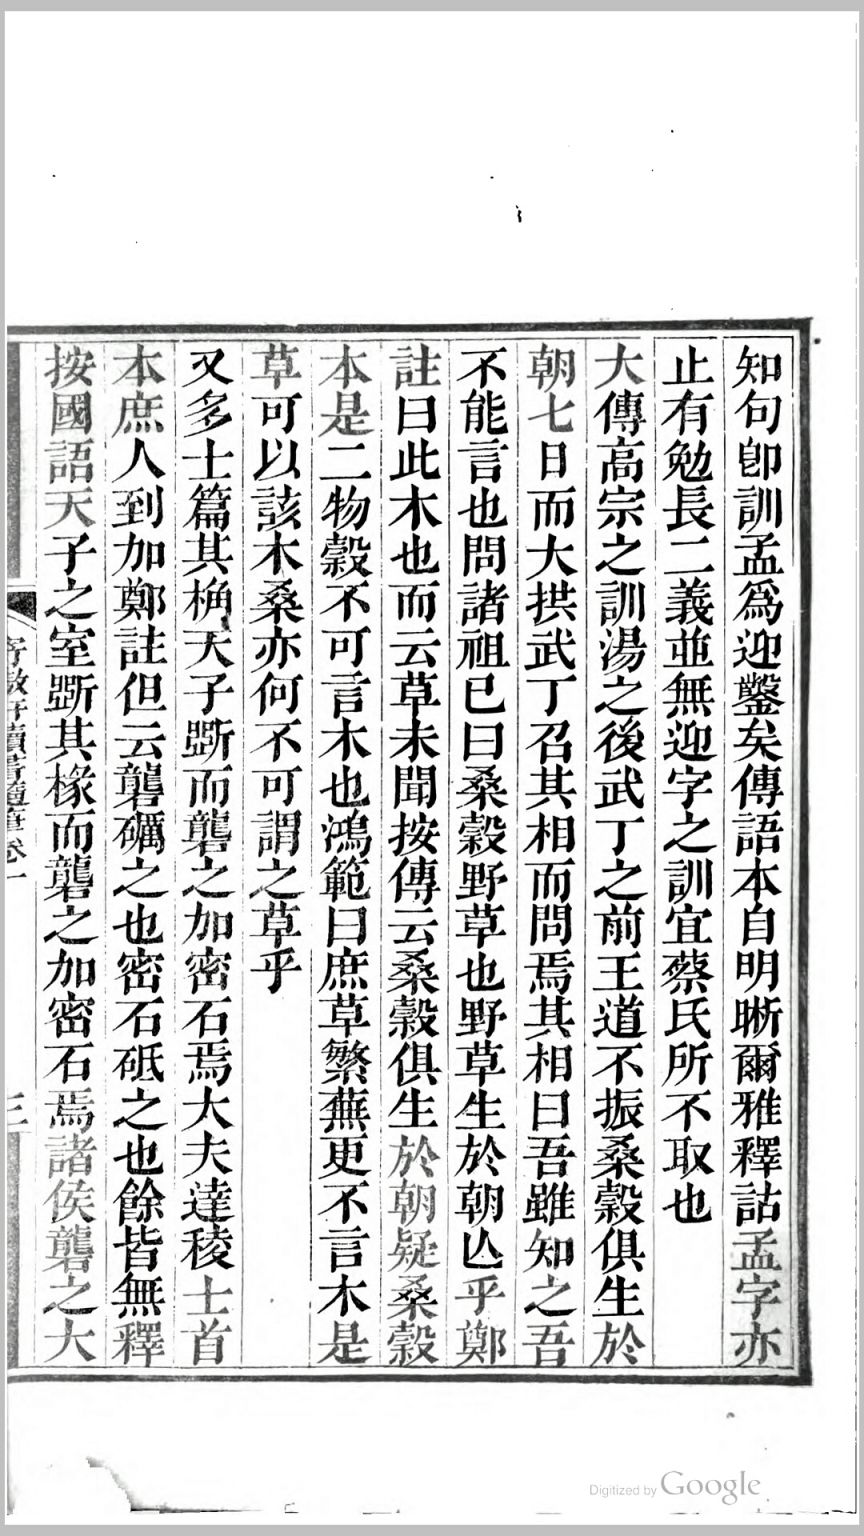 知句卽訓孟爲迎鑿矣傳語本自明晰爾雅釋詁孟字亦
止有勉長二義並無迎字之訓宜蔡氏所不取也
大傳高宗之訓湯之後武丁之前王道不振桑穀俱生於
朝七日而大拱武丁召其相而問焉其相曰吾雖知之吾
不能言也問諸祖已曰桑穀野草也野草生於朝亾乎鄭
註曰此木也而云草未聞按傳云桑穀俱生於朝疑桑穀
本是二物穀不可言木也鴻範曰庶草繁蕪更不言木是
草可以該木桑亦何不可謂之草乎
又多士篇其桷天子斲而礱之加密石焉大夫達稜士首
本庶人到加鄭註但云礱礪之也密石砥之也餘皆無釋
按國語天子之室斲其椽而礱之加密石焉諸侯礱之大
讀書隨筆卷一
三
Digitized by Google